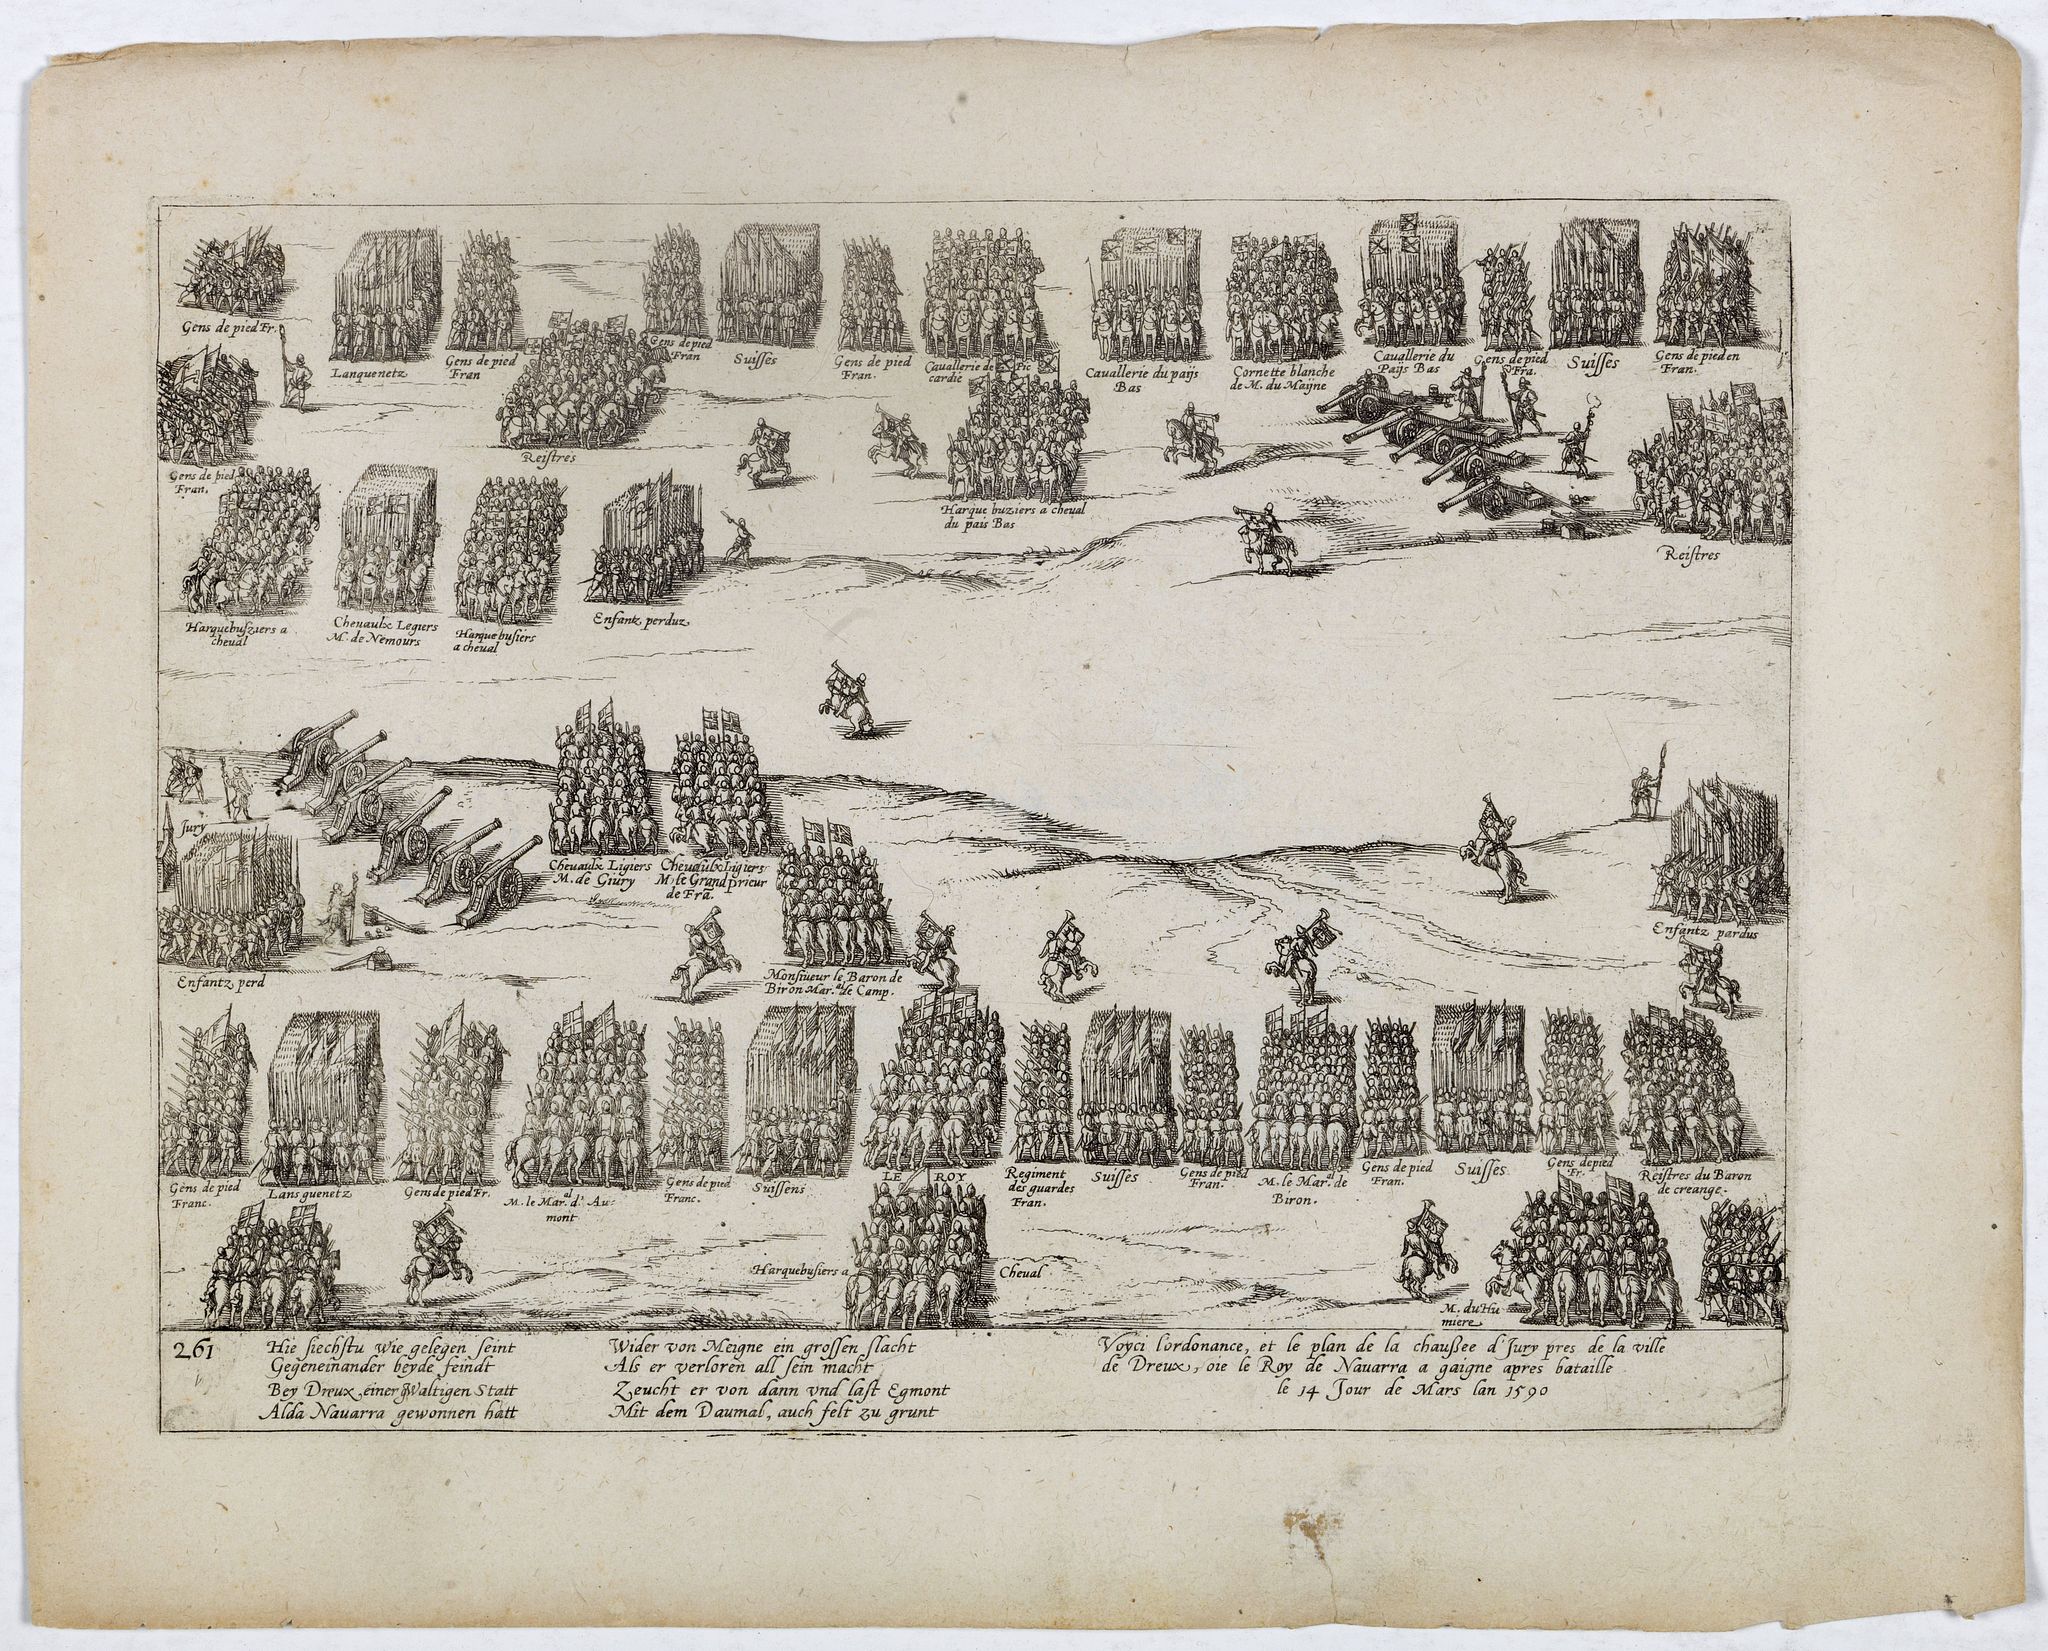 Gens de pied Fr.
Lanquenetz
Gens de pied
Fran
Gens de pied
Fran
Suisses
Gens de pied
Fran.
Cauallerie de Pic
cardie
Cauallerie du païjs
Bas
Cornette blanche
de M. du Maÿne
Cauallerie du
Païjs Bas
Gens de pied
Fra.
Suisses
Gens de pied en
Fran.
Gens de pied
Fran.
Reistres
Harque buziers a cheual
du pais Bas
Reistres
Harquebusziers a
cheual
Cheuaulx Legiers
M. de Nemours
Harquebusiers
a cheual
Enfantz perduz
Jury
Cheuaulx Ligiers
M. de Giury
Cheuaulx Ligiers
M. le Grand prieur
de Fra.
Enfantz perd
Monsiueur le Baron de
Biron Mar.al de Camp.
Enfantz pardus
Gens de pied
Franc.
Lansquenetz
Gens de pied Fr.
M. le Mar.al d'Au-
mont
Gens de pied
Franc.
Suissens
LE ROY
Regiment
des guardes
Fran.
Suisses
Gens de pied
Fran.
M. le Mar.al de
Biron.
Gens de pied
Fran.
Suisses
Gens de pied
Fr.
Reistres du Baron
de creange.
Harquebusiers a Cheual
M. du Hu
miere
261
Hie siechstu wie gelegen seint
Gegeneinander beyde feindt
Bey Dreux einer gwaltigen Statt
Alda Nauarra gewonnen hatt
Wider von Meigne ein grossen slacht
Als er verloren all sein macht
Zeucht er von dann vnd last Egmont
Mit dem Daumal, auch felt zu grunt
Voyci l'ordonance, et le plan de la chaußee d'Jury pres de la ville
de Dreux, oie le Roy de Nauarra a gaigne apres bataille
le 14 Jour de Mars lan 1590